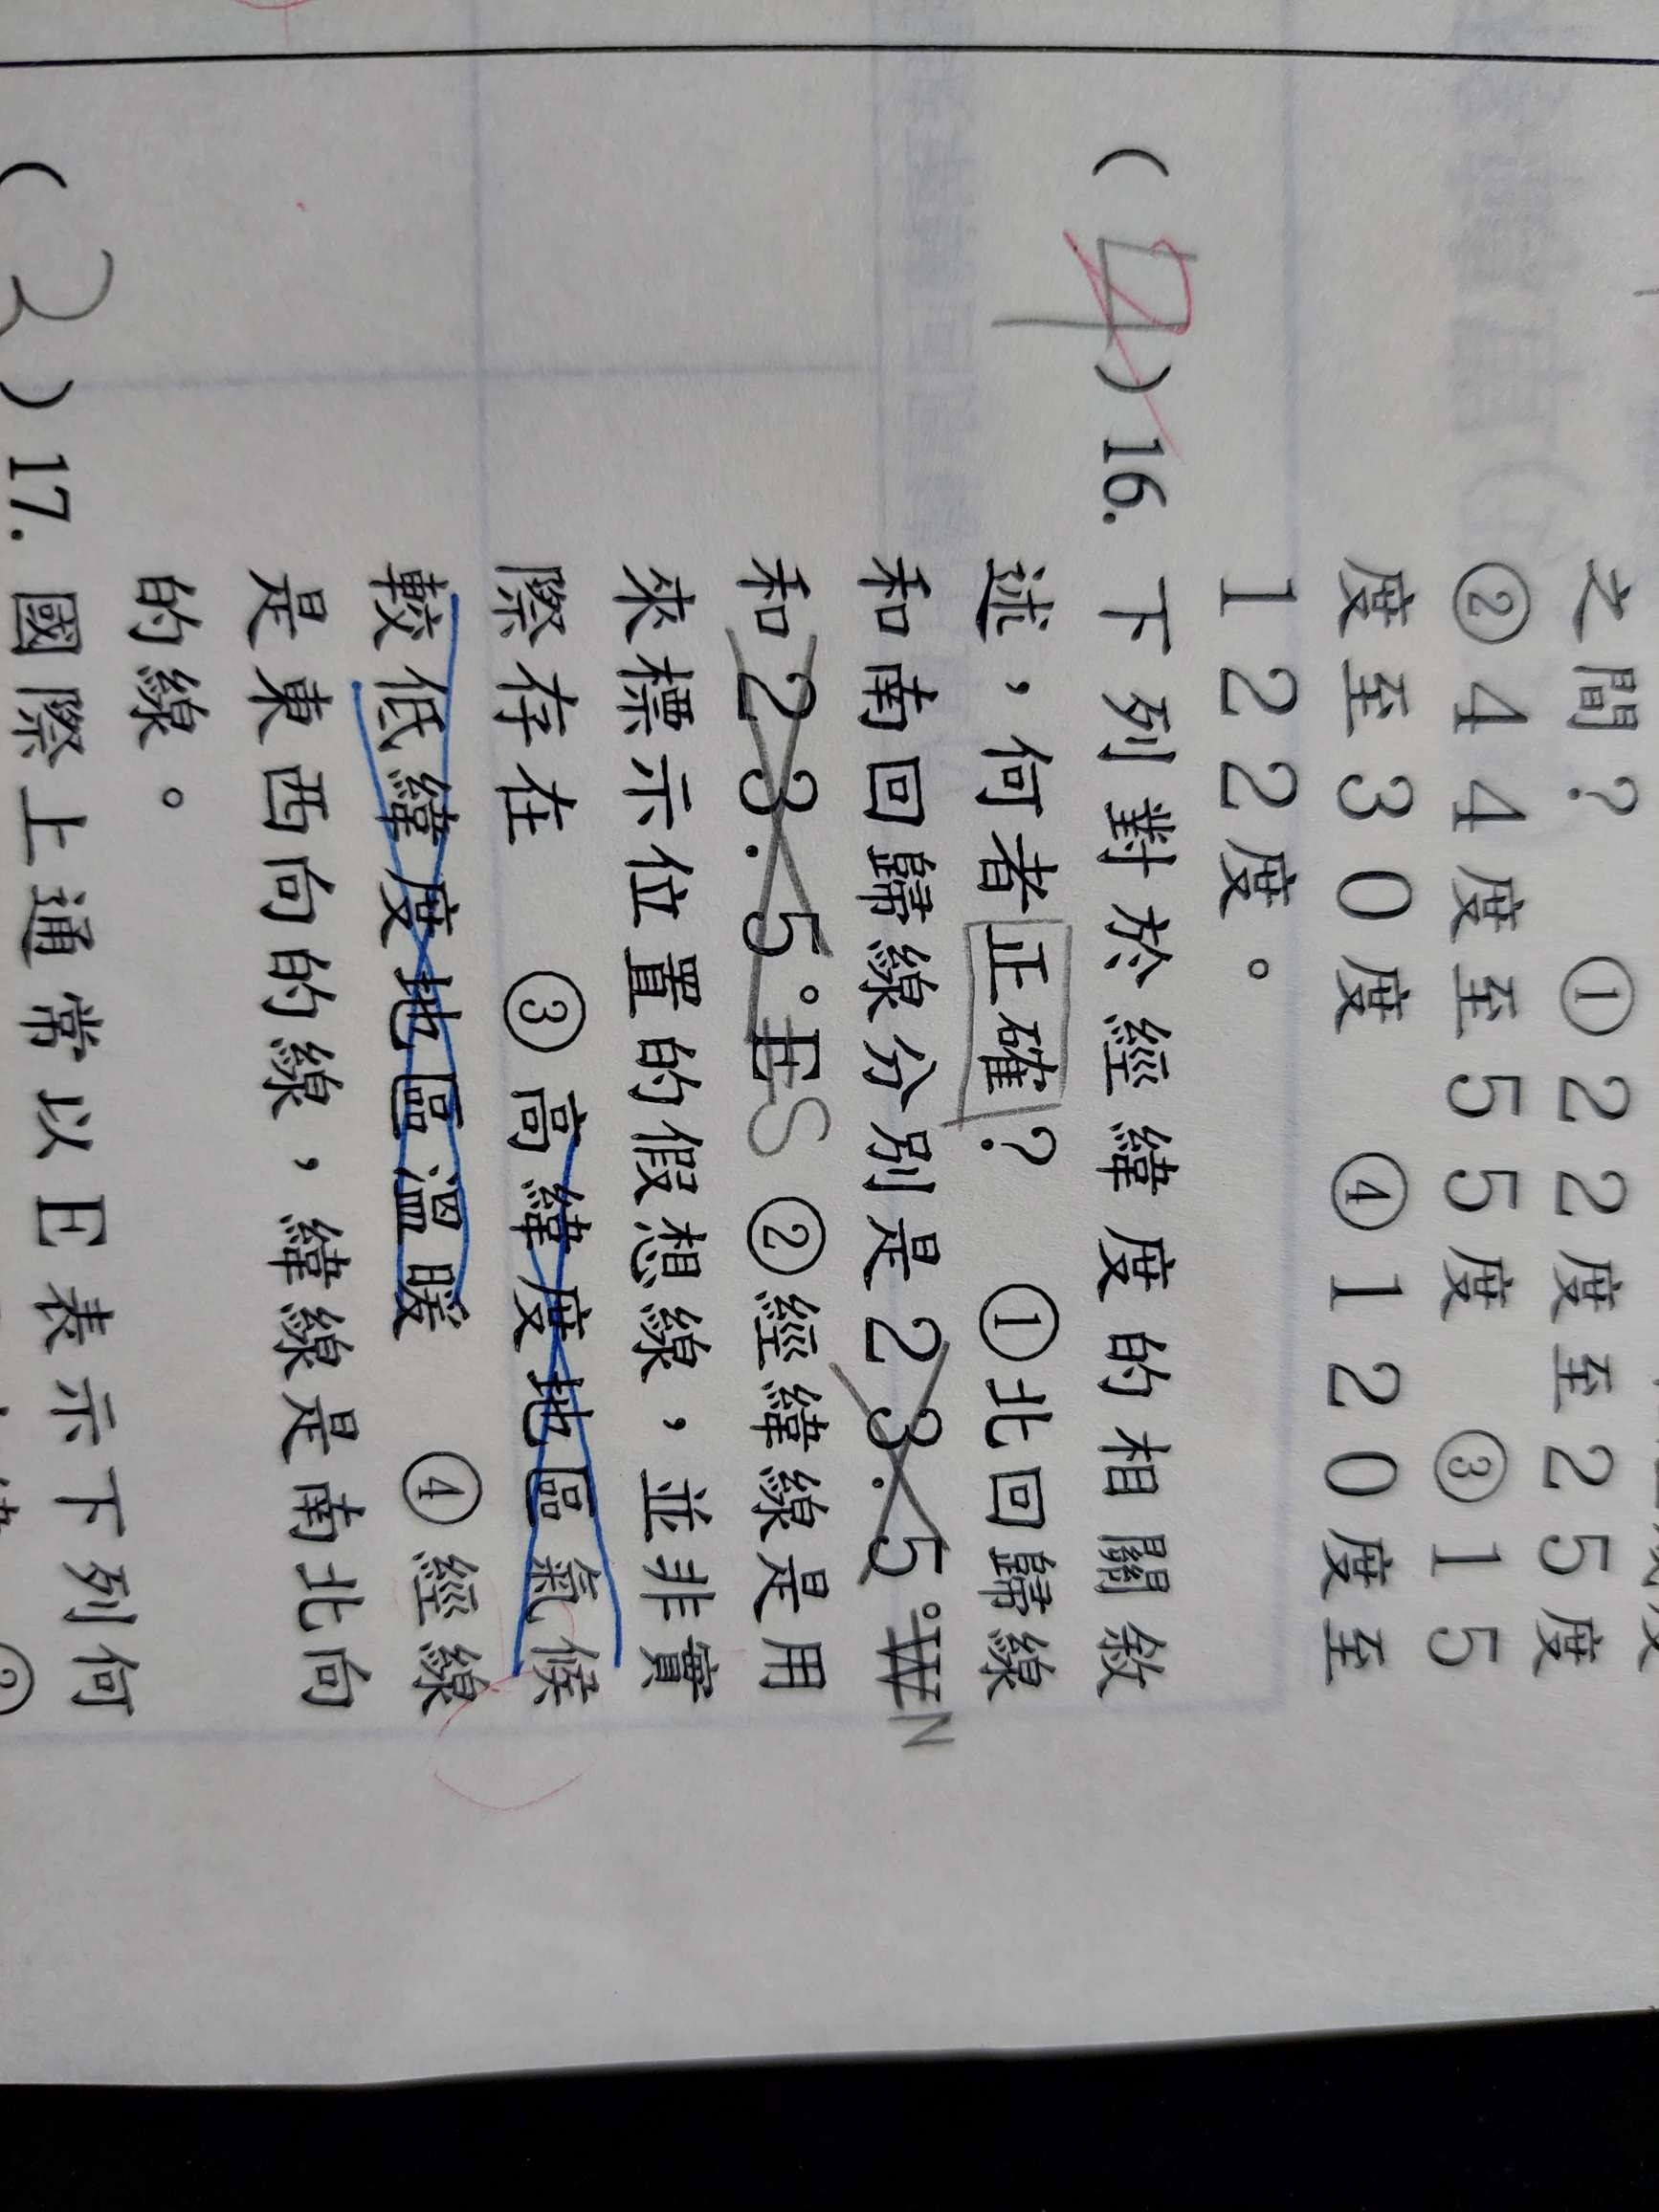 之間？ ①22度至25度
②44度至55度 ③15
度至30度 ④120度至
122度。
(4)16. 下列對於經緯度的相關敘
述，何者正確？ ①北回歸線
和南回歸線分別是23.5°W N
和23.5°E S ②經緯線是用
來標示位置的假想線，並非實
際存在 ③高緯度地區氣候
較低緯度地區溫暖 ④經線
是東西向的線，緯線是南北向
的線。
)17. 國際上通常以E表示下列何